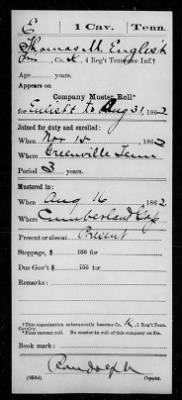 E 1 Cav. Tenn.
Thomas M English
Co. K, 4 Reg't Tennessee Inf.†
Age years.
Appears on
Company Muster Roll*
for Enlistt to Aug 31, 1862
Joined for duty and enrolled:
When Nov 15, 186
Where Greenville Tenn
Period 3 years.
Mustered in:
When Aug 16, 1862
Where Cumberland Gap
Present or absent Present
Stoppage, $ 100 for
Due Gov't $ 100 for
Remarks:
†This organization subsequently became Co. , 1 Reg't Tenn. Cavalry.
Book mark:
Randolph
Copyist.